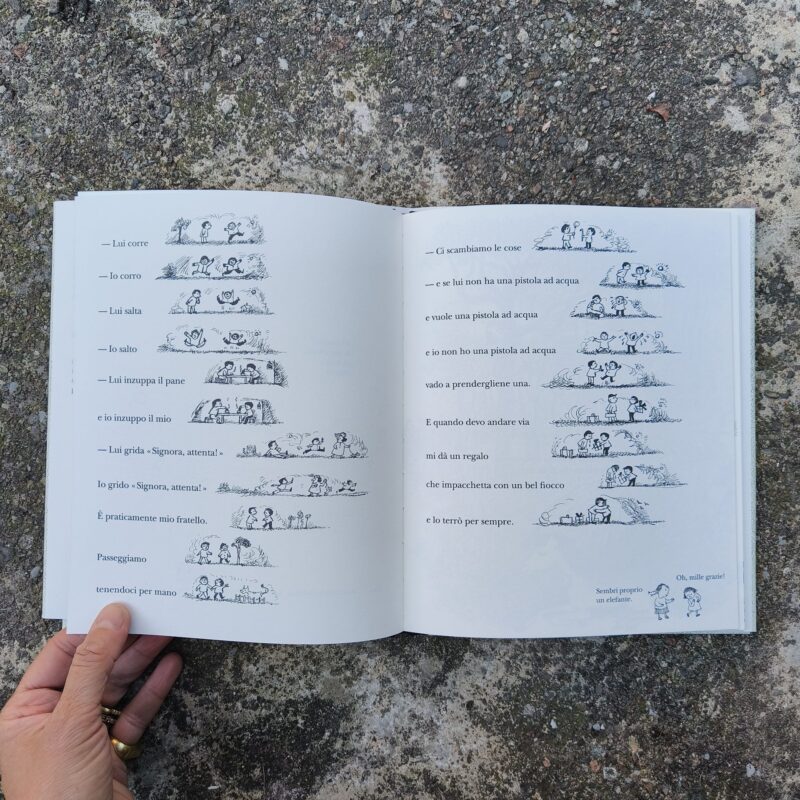 — Lui corre
— Io corro
— Lui salta
— Io salto
— Lui inzuppa il pane
e io inzuppo il mio
— Lui grida «Signora, attenta!»
Io grido «Signora, attenta!»
È praticamente mio fratello.
Passeggiamo
tenendoci per mano
— Ci scambiamo le cose
— e se lui non ha una pistola ad acqua
e vuole una pistola ad acqua
e io non ho una pistola ad acqua
vado a prendergliene una.
E quando devo andare via
mi dà un regalo
che impacchetta con un bel fiocco
e lo terrò per sempre.
Sembri proprio
un elefante.
Oh, mille grazie!